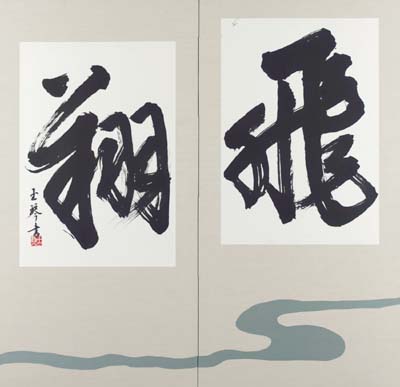 飛
翔
玉琴書